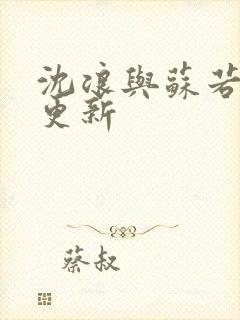 沈浪與蘇若
更新
蔡叔